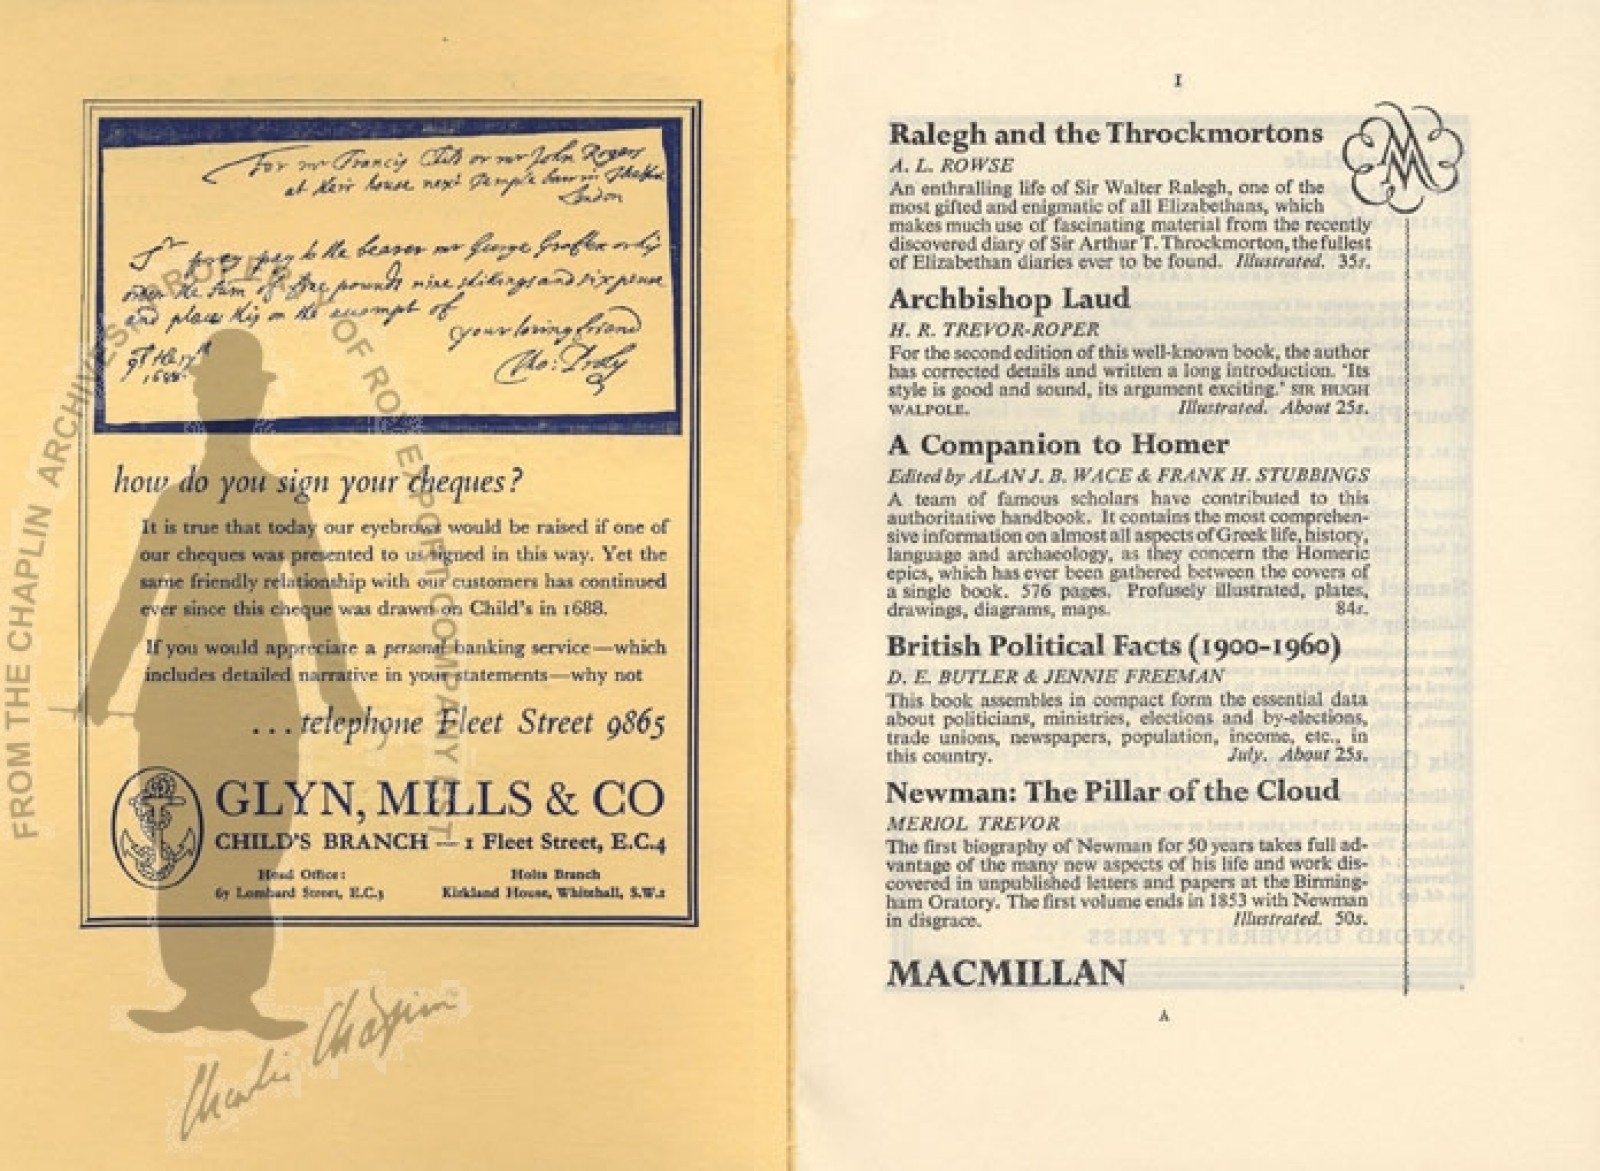 For mr Francis Child or mr John Rogers
at their house next Temple barr in
London
Sr pray pay to the bearer mr George
order the sum of pounds nine shillings and six pence
and place this on the accompt of
your loving friend
1688
how do you sign your cheques?
It is true that today our eyebrows would be raised if one of
our cheques was presented to us signed in this way. Yet the
same friendly relationship with our customers has continued
ever since this cheque was drawn on Child's in 1688.
If you would appreciate a personal banking service—which
includes detailed narrative in your statements—why not
...telephone Fleet Street 9865
GLYN, MILLS & CO
CHILD'S BRANCH — 1 Fleet Street, E.C.4
Head Office:
67 Lombard Street, E.C.3
Holts Branch
Kirkland House, Whitehall, S.W.1
FROM THE CHAPLIN ARCHIVES. PROPERTY OF ROY EXPORT COMPANY EST
Charlie Chaplin
I
Ralegh and the Throckmortons
A. L. ROWSE
An enthralling life of Sir Walter Ralegh, one of the
most gifted and enigmatic of all Elizabethans, which
makes much use of fascinating material from the recently
discovered diary of Sir Arthur T. Throckmorton, the fullest
of Elizabethan diaries ever to be found. Illustrated. 35s.
Archbishop Laud
H. R. TREVOR-ROPER
For the second edition of this well-known book, the author
has corrected details and written a long introduction. 'Its
style is good and sound, its argument exciting.' SIR HUGH
WALPOLE. Illustrated. About 25s.
A Companion to Homer
Edited by ALAN J. B. WACE & FRANK H. STUBBINGS
A team of famous scholars have contributed to this
authoritative handbook. It contains the most comprehen-
sive information on almost all aspects of Greek life, history,
language and archaeology, as they concern the Homeric
epics, which has ever been gathered between the covers of
a single book. 576 pages. Profusely illustrated, plates,
drawings, diagrams, maps. 84s.
British Political Facts (1900-1960)
D. E. BUTLER & JENNIE FREEMAN
This book assembles in compact form the essential data
about politicians, ministries, elections and by-elections,
trade unions, newspapers, population, income, etc., in
this country. July. About 25s.
Newman: The Pillar of the Cloud
MERIOL TREVOR
The first biography of Newman for 50 years takes full ad-
vantage of the many new aspects of his life and work dis-
covered in unpublished letters and papers at the Birming-
ham Oratory. The first volume ends in 1853 with Newman
in disgrace. Illustrated. 50s.
MACMILLAN
A